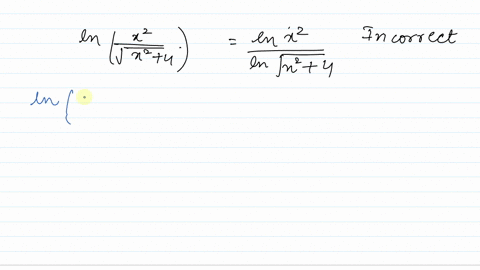 ln ( x² / √x²+4 ) = ln x² / ln √x²+4 Incorrect
ln (